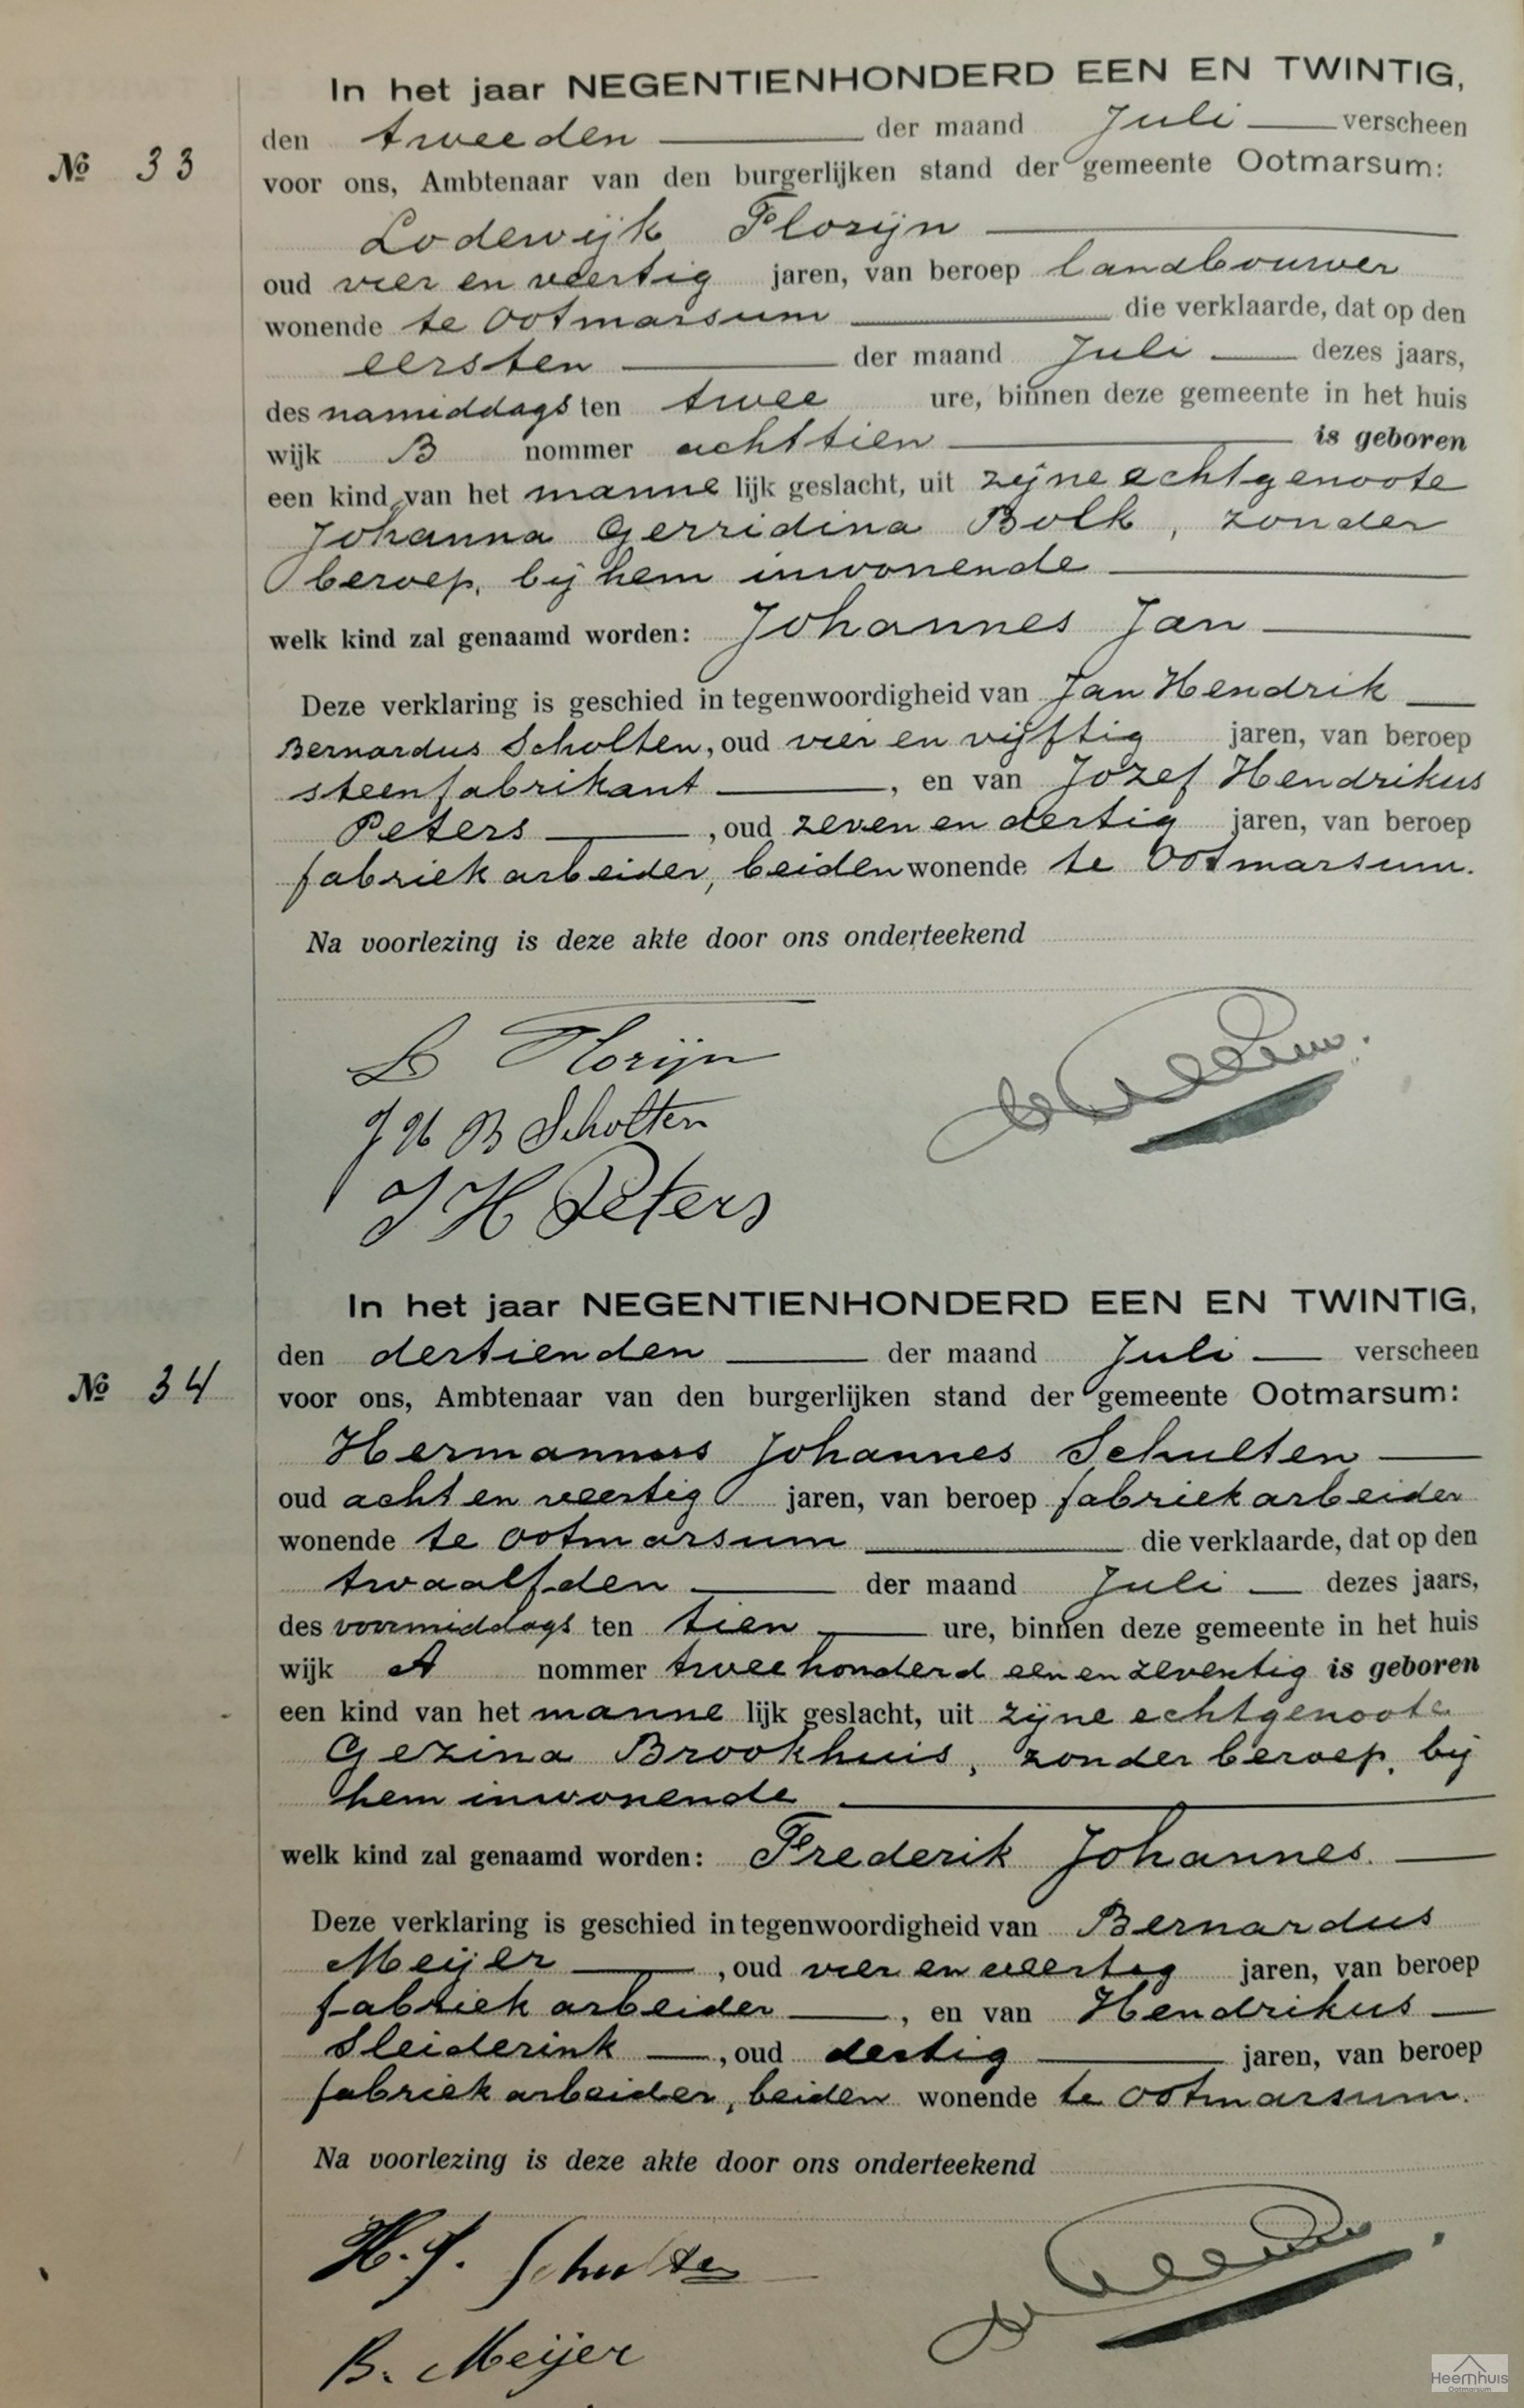 In het jaar NEGENTIENHONDERD EEN EN TWINTIG,
den tweeden der maand Juli verscheen
№ 33
voor ons, Ambtenaar van den burgerlijken stand der gemeente Ootmarsum:
Lodewijk Florijn
oud vier en veertig jaren, van beroep landbouwer
wonende te Ootmarsum die verklaarde, dat op den
eersten der maand Juli dezes jaars,
des namiddags ten twee ure, binnen deze gemeente in het huis
wijk B nommer achttien is geboren
een kind van het manne lijk geslacht, uit zijne echtgenoote
Johanna Gerridina Bolk, zonder
beroep, bij hem inwonende
welk kind zal genaamd worden: Johannes Jan
Deze verklaring is geschied in tegenwoordigheid van Jan Hendrik
Bernardus Scholten, oud vier en vijftig jaren, van beroep
steenfabrikant, en van Jozef Hendrikus
Peters, oud zeven en dertig jaren, van beroep
fabriekarbeider, beiden wonende te Ootmarsum.
Na voorlezing is deze akte door ons onderteekend
L Florijn
J H B Scholten
J H Peters
In het jaar NEGENTIENHONDERD EEN EN TWINTIG,
den dertienden der maand Juli verscheen
№ 34
voor ons, Ambtenaar van den burgerlijken stand der gemeente Ootmarsum:
Hermannus Johannes Schulten
oud acht en veertig jaren, van beroep fabriekarbeider
wonende te Ootmarsum die verklaarde, dat op den
twaalfden der maand Juli dezes jaars,
des voormiddags ten tien ure, binnen deze gemeente in het huis
wijk A nommer tweehonderd een en zeventig is geboren
een kind van het manne lijk geslacht, uit zijne echtgenoote
Gezina Brookhuis, zonder beroep, bij
hem inwonende
welk kind zal genaamd worden: Frederik Johannes.
Deze verklaring is geschied in tegenwoordigheid van Bernardus
Meijer, oud vier en veertig jaren, van beroep
fabriekarbeider, en van Hendrikus
Sleiderink, oud dertig jaren, van beroep
fabriekarbeider, beiden wonende te Ootmarsum.
Na voorlezing is deze akte door ons onderteekend
H. J. Schulten
B. Meijer
Heemhuis
Ootmarsum